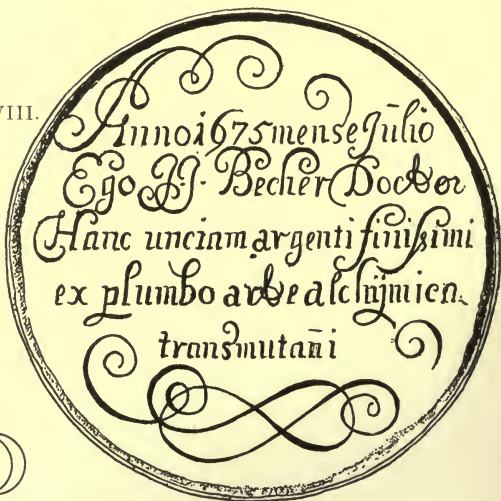 VIII.
Anno 1675 mense Julio
Ego J. J. Becher Doctor
Hanc unciam argenti finissimi
ex plumbo arte alchymica
transmutavi